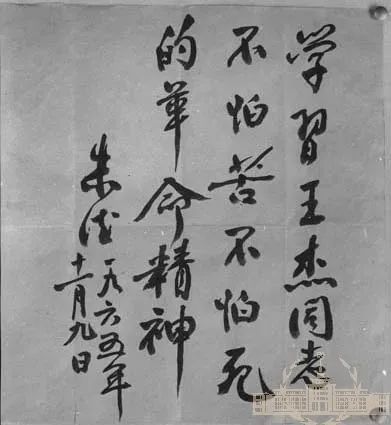 学習王杰同志
不怕苦不怕死
的革命精神
朱德一九六五年
十一月九日